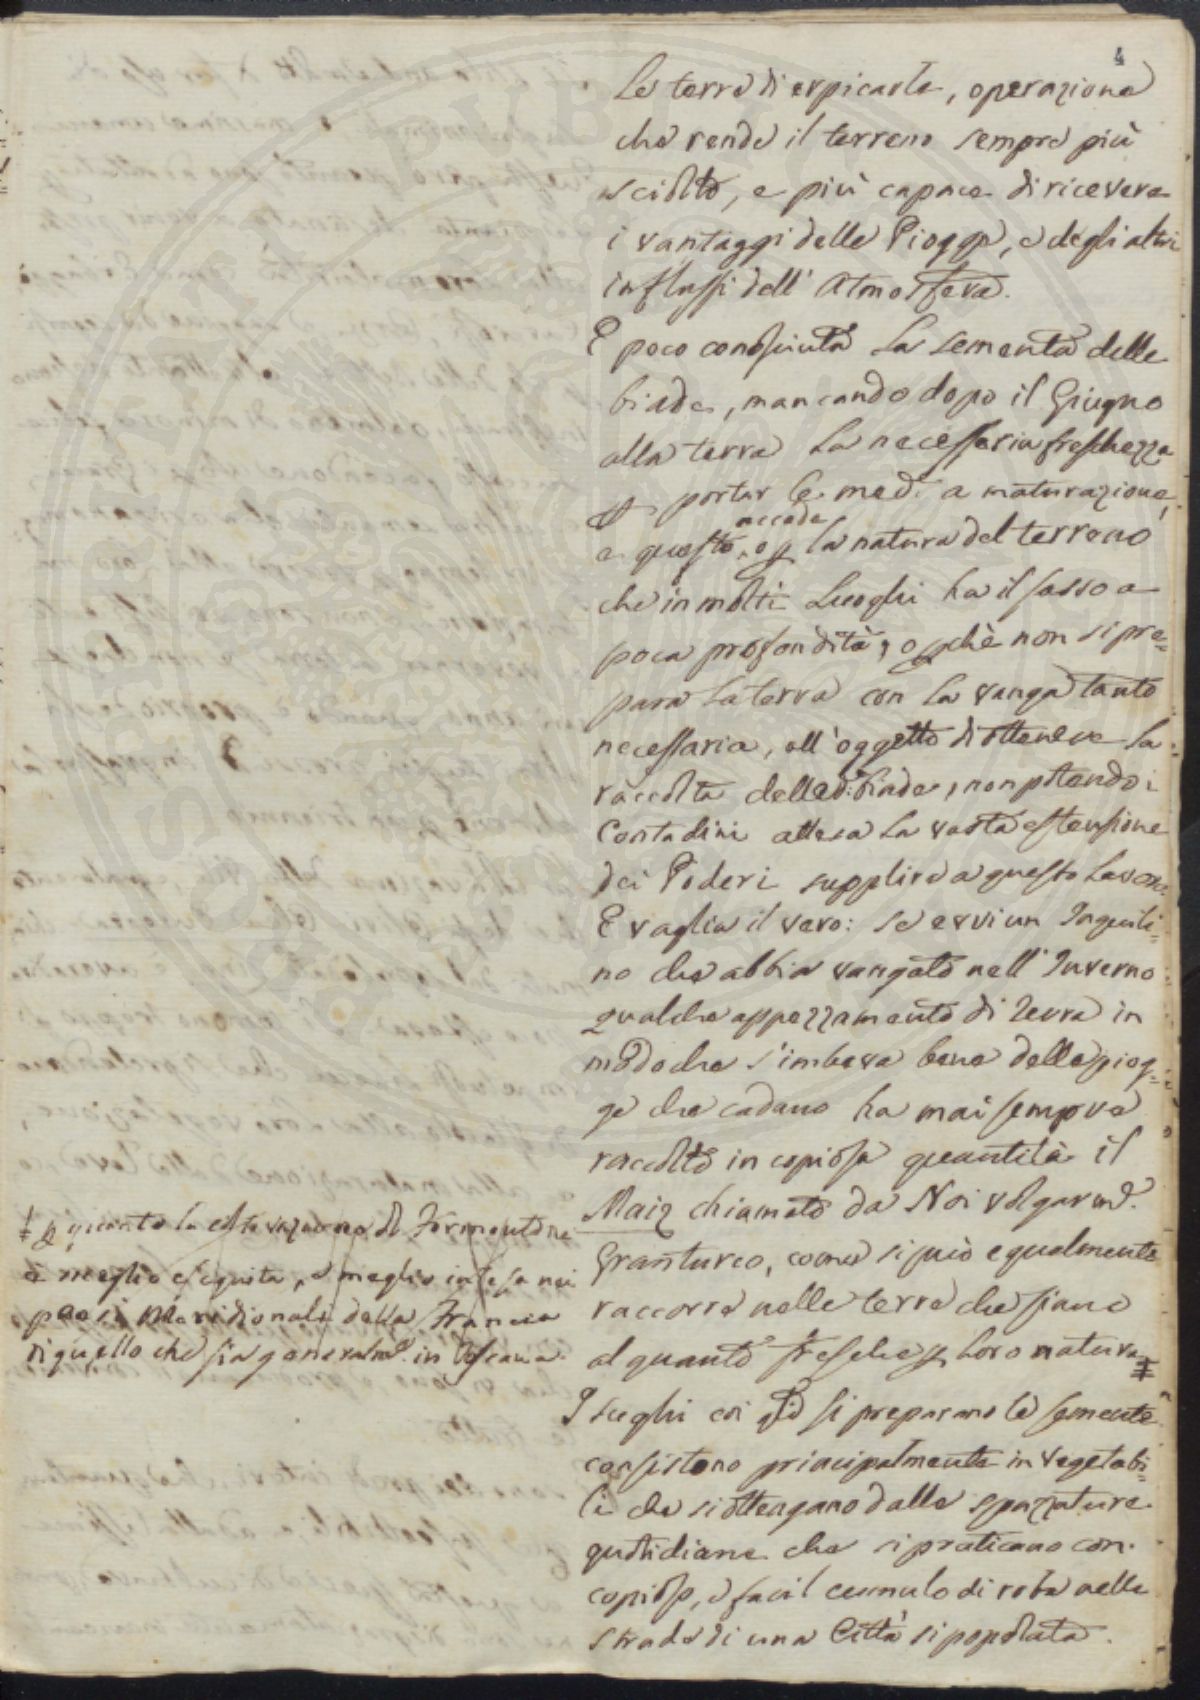 4
Le terre di erpicarle, operazione
che rende il terreno sempre più
sciolto, e più capace di ricevere
i vantaggi delle Piogge, e degli altri
influssi dell' Atmosfera.
E poco conosciuta La sementa delle
biade, mancando dopo il Giugno
alla terra La necessaria freschezza
p portar le medᵉ a maturazione,
e questo, accade o p la natura del terreno
che in molti Luoghi ha il sasso a
poca profondità, o pchè non si pre=
para La terra con La vanga tanto
necessaria, all'oggetto di ottenere La
raccolta delle dᵉ: biade, non potendo i
Contadini attesa La vasta estensione
dei Poderi supplire a questo Lavoro.
E vaglia il vero: se evvi un Inquili=
no che abbia vangato nell' Inverno
qualche appezzamento di Terra in
modo che s'imbeva bene delle piog=
ge che cadano ha mai sempre
raccolto in copiosa quantità il
Maiz chiamato da Noi volgarmᵉ.
Granturco, come si può egualmente
raccorre nelle terre che siano
alquanto fresche p Loro natura ‡
‡ p quanto la coltivazione del Formentone
è meglio eseguita, e meglio intesa nei
paesi Meridionali della Francia
di quello che sia generalmᵉ. in Toscana.
I sughi coi qⁱ si preparano le semente
consistono principalmente in vegetabi=
li che si ottengano dalle spazzature
quotidiane che si praticano con
copioso, e facil cumulo di roba nelle
strade di una Città sì popolata.